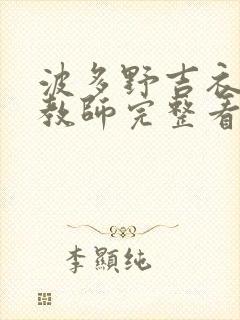 波多野吉衣
教师完整看
李顯纯